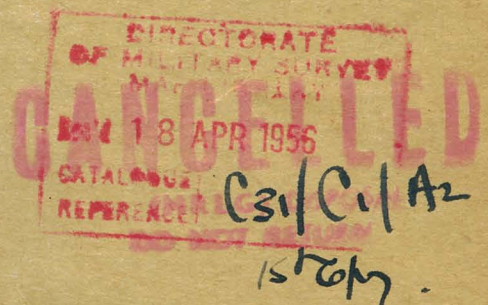 DIRECTORATE
OF MILITARY SURVEY
CANCELLED
18 APR 1956
CATALOGUE
REFERENCE
C31/C1/A2
DO NOT RETURN
1st Copy.